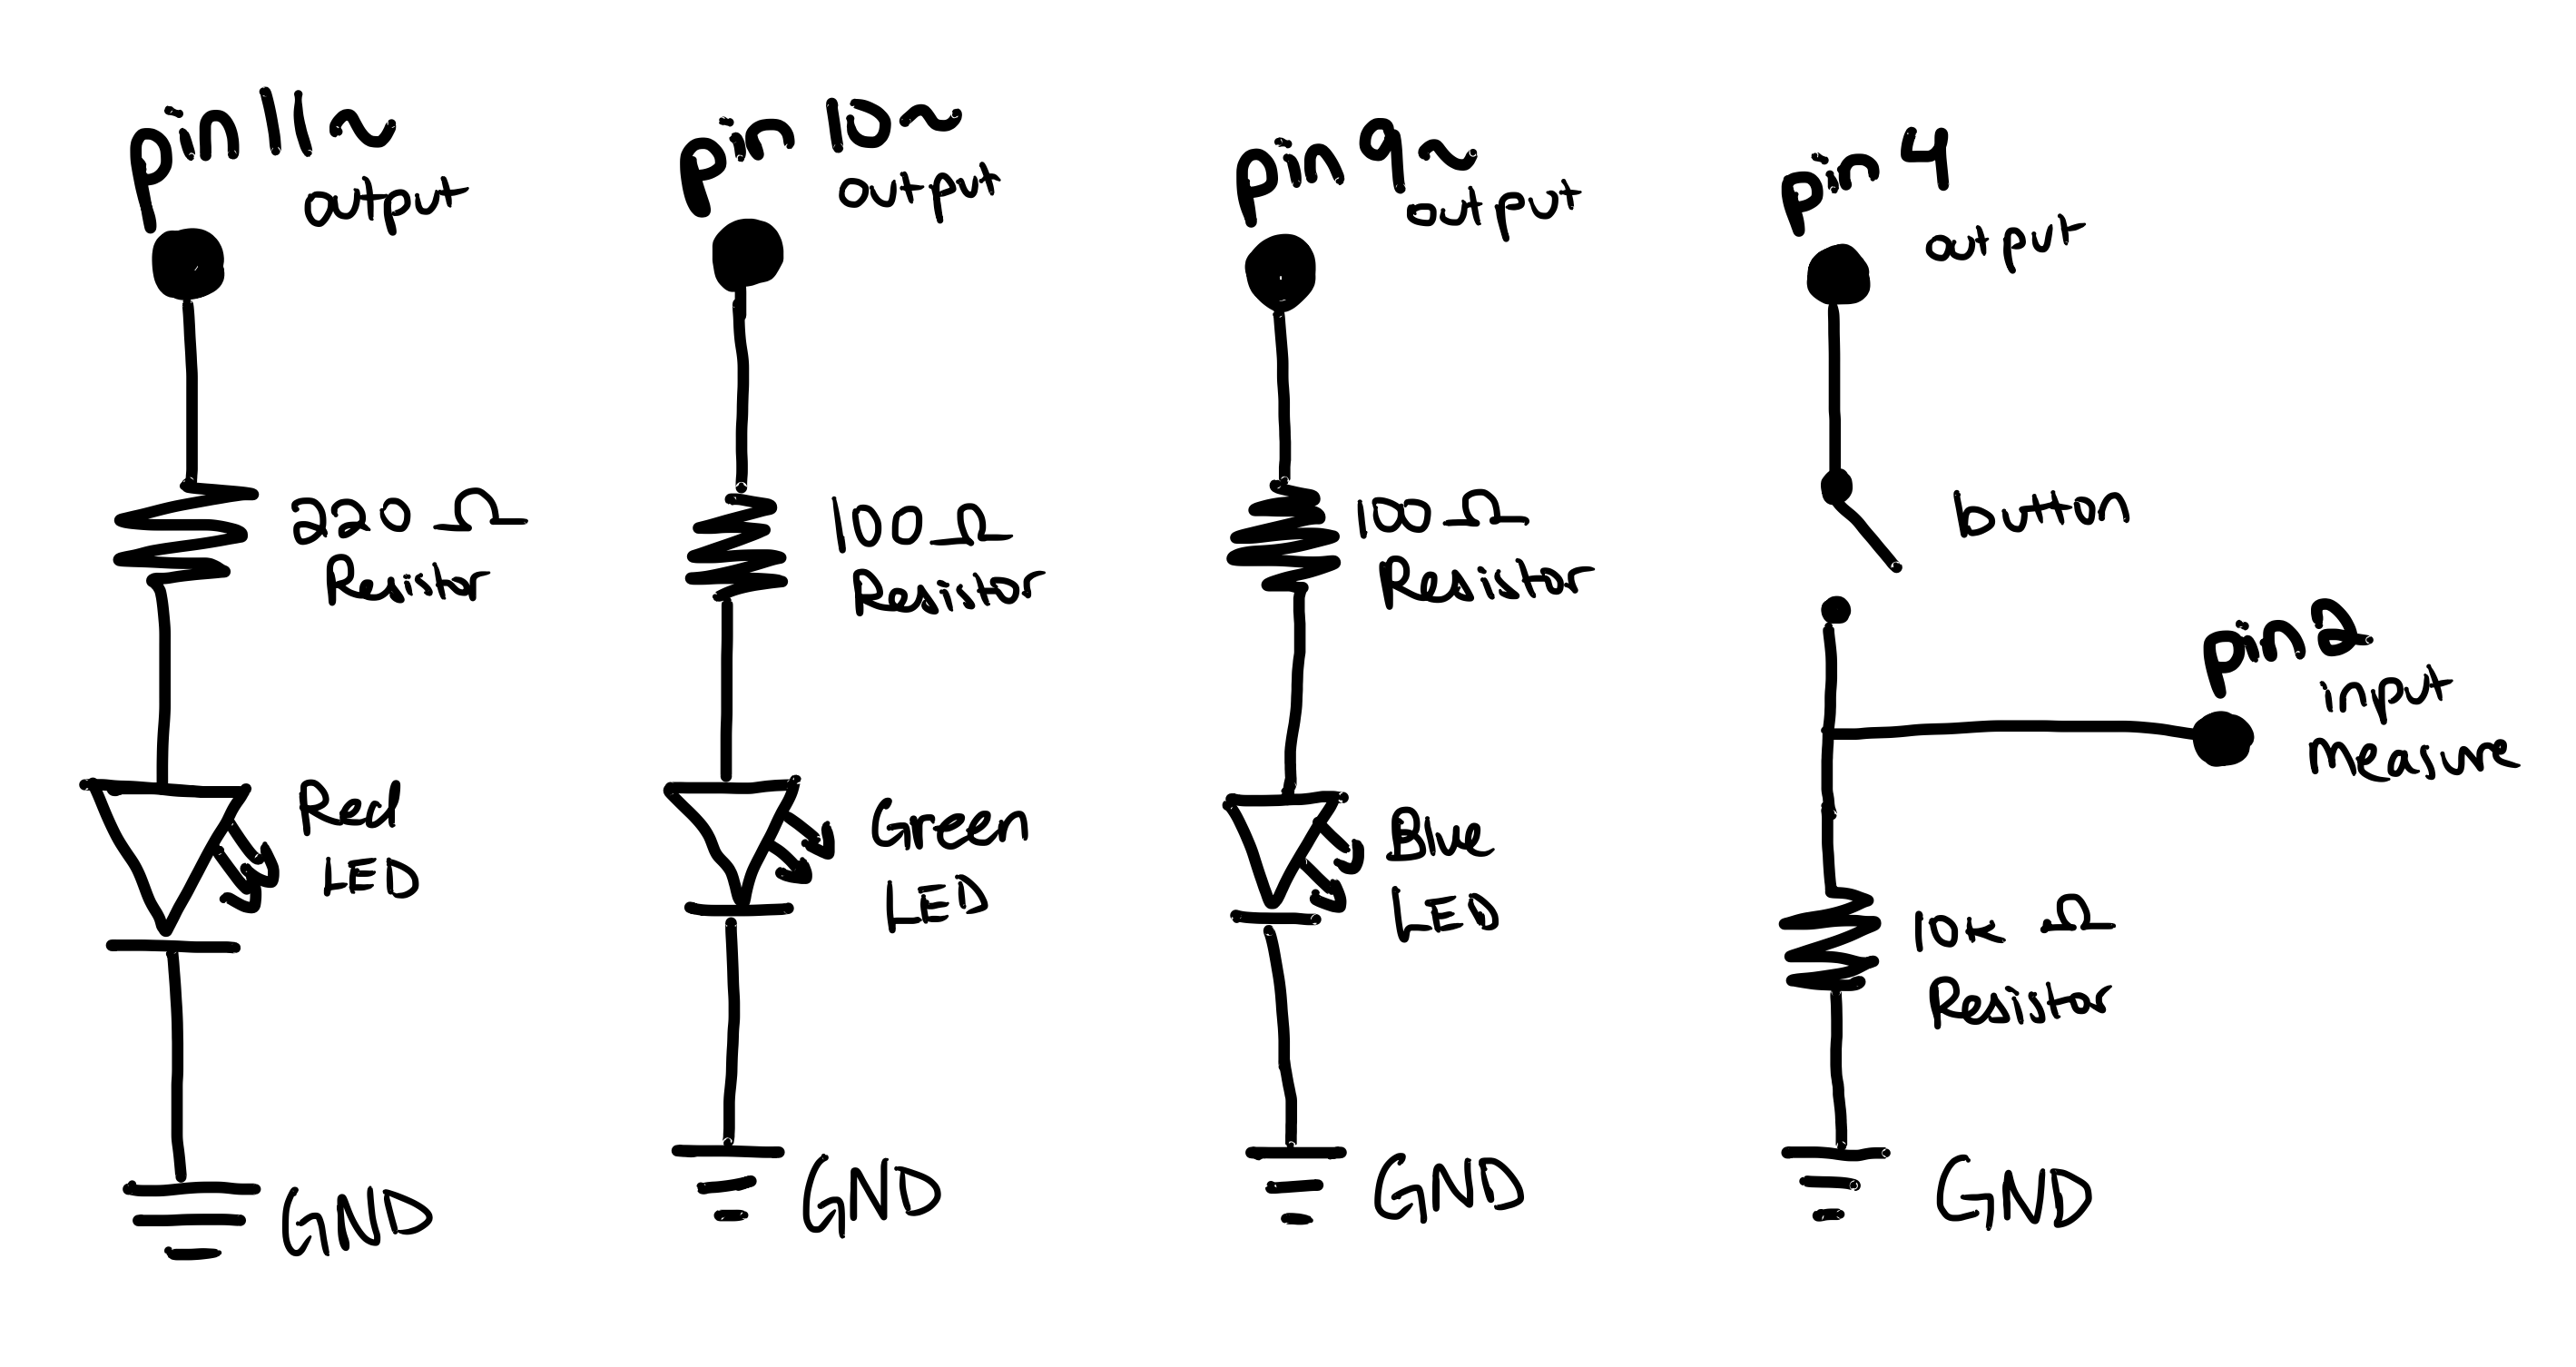 pin 11~
output
220 Ω
Resistor
Red
LED
GND
pin 10~
output
100 Ω
Resistor
Green
LED
GND
pin 9~
output
100 Ω
Resistor
Blue
LED
GND
pin 4
output
button
pin 2
input
measure
10k Ω
Resistor
GND